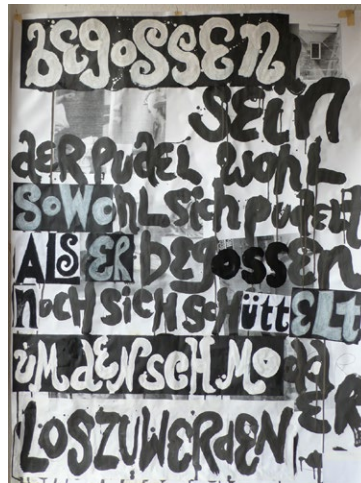 BEGOSSEN
SEiN
dER PUdEL WOHL
SOWOHL SiCH
ALS ER bEGOSSEN
nOCH SiCH SCHüttELT
üM dEN SCHMOddER
LOSZUWERdEN